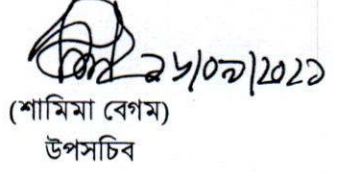 ২৮/০৯/২০২১
(শামিমা বেগম)
উপসচিব